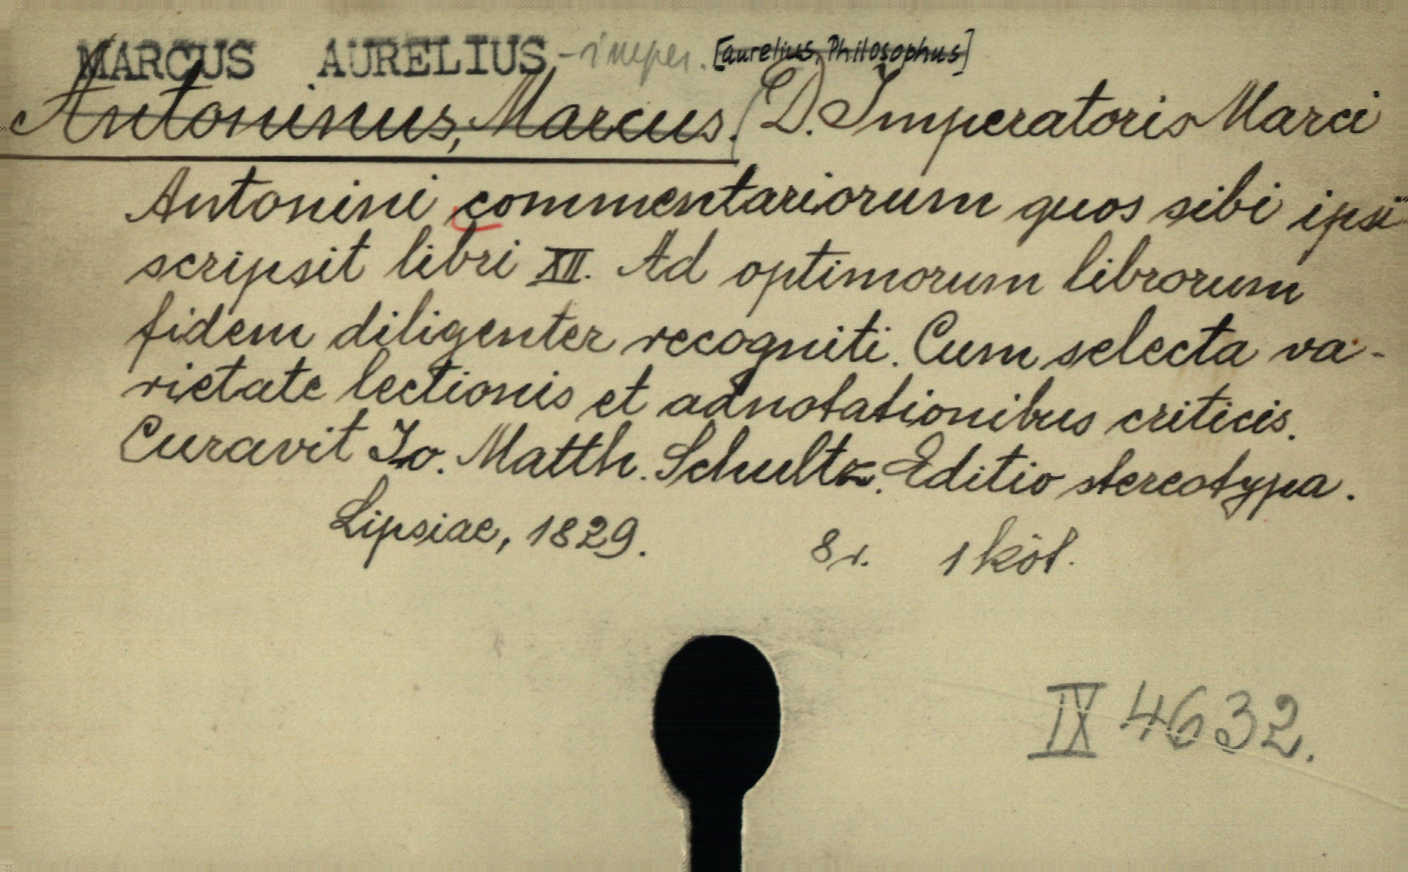 MARCUS AURELIUS - imper. [aurelius, Philosophus]
Antoninus, Marcus. D. Imperatoris Marci
Antonini commentariorum quos sibi ipsi
scripsit libri XII. Ad optimorum librorum
fidem diligenter recogniti. Cum selecta va-
rietate lectionis et adnotationibus criticis.
Curavit Jo. Matth. Schultz. Editio stereotypa.
Lipsiae, 1829. 8 r. 1 köt.
IX 4632.